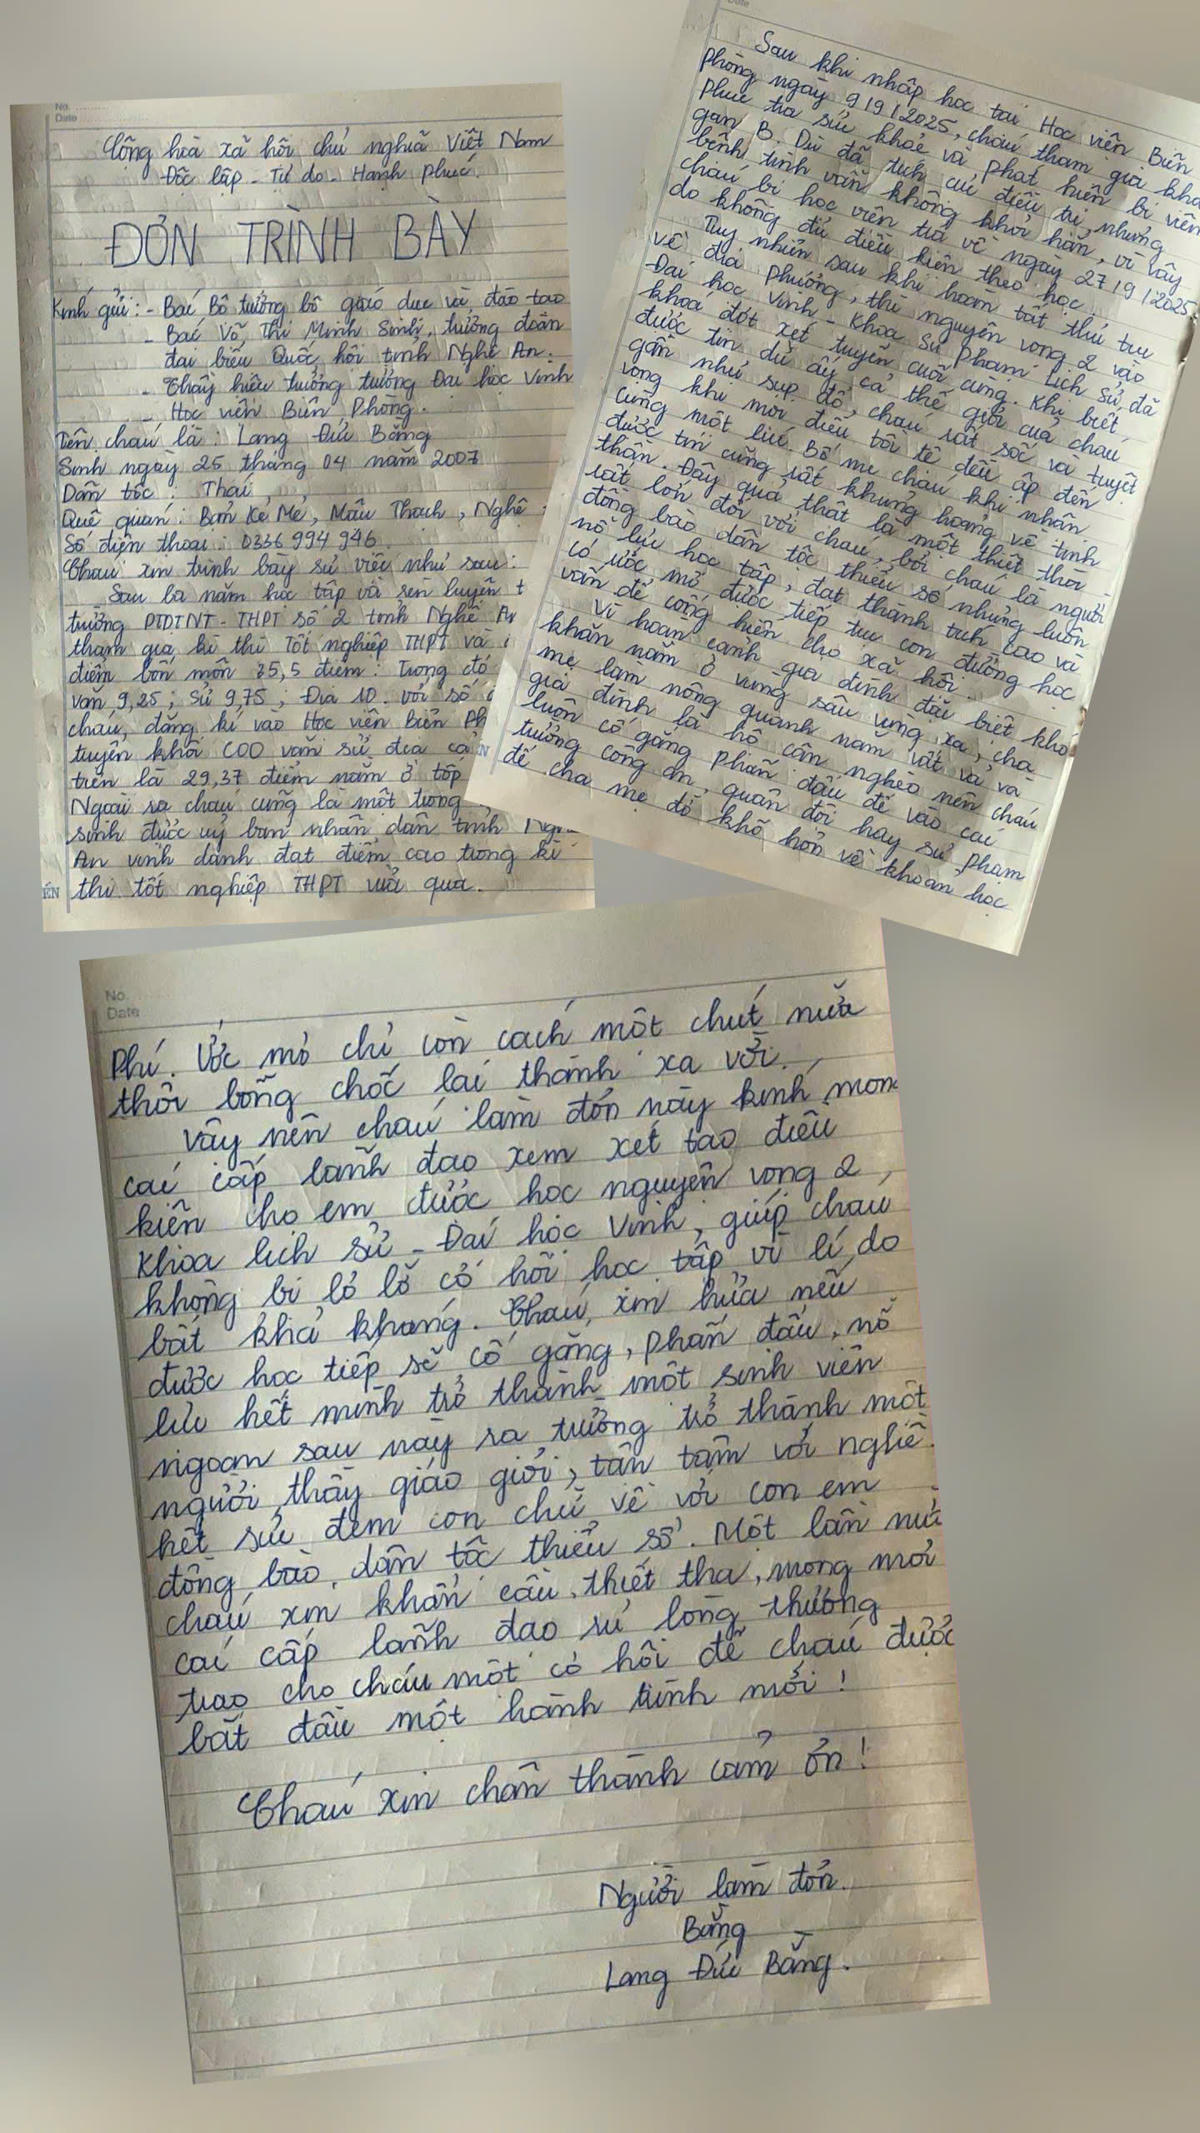 No.
Date
Cộng hoà xã hội chủ nghĩa Việt Nam
Độc lập - Tự do - Hạnh phúc.
ĐƠN TRÌNH BÀY
Kính gửi: - Bác Bộ trưởng bộ giáo dục và đào tạo
- Bác Võ Thị Minh Sinh, trưởng đoàn
đại biểu Quốc hội tỉnh Nghệ An.
- Thầy hiệu trưởng trường Đại học Vinh
- Học viện Biên Phòng.
Tên cháu là: Lang Đức Bằng
Sinh ngày 25 tháng 04 năm 2007
Dân tộc: Thái
Quê quán: Bản Kẻ Mẻ, Mậu Thạch, Nghệ
Số điện thoại: 0336 994 946
Cháu xin trình bày sự việc như sau:
Sau ba năm học tập và rèn luyện t
trường PTDTNT - THPT số 2 tỉnh Nghệ An
tham gia kì thi Tốt nghiệp THPT và
điểm bốn môn 35,5 điểm: Trong đó
văn 9,25; Sử 9,75; Địa 10. với số
cháu, đăng kí vào Học viện Biên Ph
tuyển khối C00 văn sử địa cộ
trên là 29,37 điểm nằm ở tốp
Ngoài ra cháu cũng là một trong
sinh được uỷ ban nhân dân tỉnh Ngh
An vinh danh đạt điểm cao trong kì
thi tốt nghiệp THPT vừa qua.
ẾN
Date
Sau khi nhập học tại Học viện Biên
Phòng ngày 9/9/2025, cháu tham gia khá
phúc tra sức khoẻ và phát hiện bị viên
gan B. Dù đã tích cực điều trị, nhưng
bệnh tình vẫn không khỏi hẳn, vì vậy
cháu bị học viện trả về ngày 27/9/2025
do không đủ điều kiện theo học.
Tuy nhiên sau khi hoàn tất thủ tục
về địa phương, thì nguyện vọng 2 vào
Đại học Vinh - Khoa Sư Phạm Lịch Sử, đã
khoá đợt xét tuyển cuối cùng. Khi biết
được tin dữ ấy cả thế giới của cháu
gần như sụp đổ, cháu rất sốc và tuyệt
vọng khi mọi điều tồi tệ đều ập đến
cùng một lúc. Bố mẹ cháu khi nhận
được tin cũng rất khủng hoảng về tinh
thần. Đây quả thật là một thiệt thòi
rất lớn đối với cháu, bởi cháu là người
đồng bào dân tộc thiểu số nhưng luôn
nỗ lực học tập, đạt thành tích cao và
có ước mơ được tiếp tục con đường học
vấn để cống hiến cho xã hội.
Vì hoàn cảnh gia đình đặc biệt khó
khăn nằm ở vùng sâu vùng xa, cha
mẹ làm nông quanh năm vất vả và
gia đình là hộ cận nghèo nên cháu
luôn cố gắng phấn đấu để vào các
trường công an, quân đội hay sư phạm
để cha mẹ đỡ khổ hơn về khoản học
No.
Date
Phí. Ước mơ chỉ còn cách một chút nữa
thôi bỗng chốc lại thành xa vời.
Vậy nên cháu làm đơn này kính mong
các cấp lãnh đạo xem xét tạo điều
kiện cho em được học nguyện vọng 2,
Khoa lịch sử - Đại học Vinh, giúp cháu
không bị lỡ lỡ cơ hội học tập vì lí do
bất khả kháng. Cháu xin hứa nếu
được học tiếp sẽ cố gắng, phấn đấu, nỗ
lực hết mình trở thành một sinh viên
ngoan sau này ra trường trở thành một
người thầy giáo giỏi, tận tâm với nghề.
hết sức đem con chữ về với con em
đồng bào dân tộc thiểu số. Một lần nữa
cháu xin khẩn cầu, thiết tha, mong mỏi
các cấp lãnh đạo sự lòng thương
trao cho cháu một cơ hội để cháu được
bắt đầu một hành trình mới!
Cháu xin chân thành cảm ơn!
Người làm đơn.
Bằng
Lang Đức Bằng.